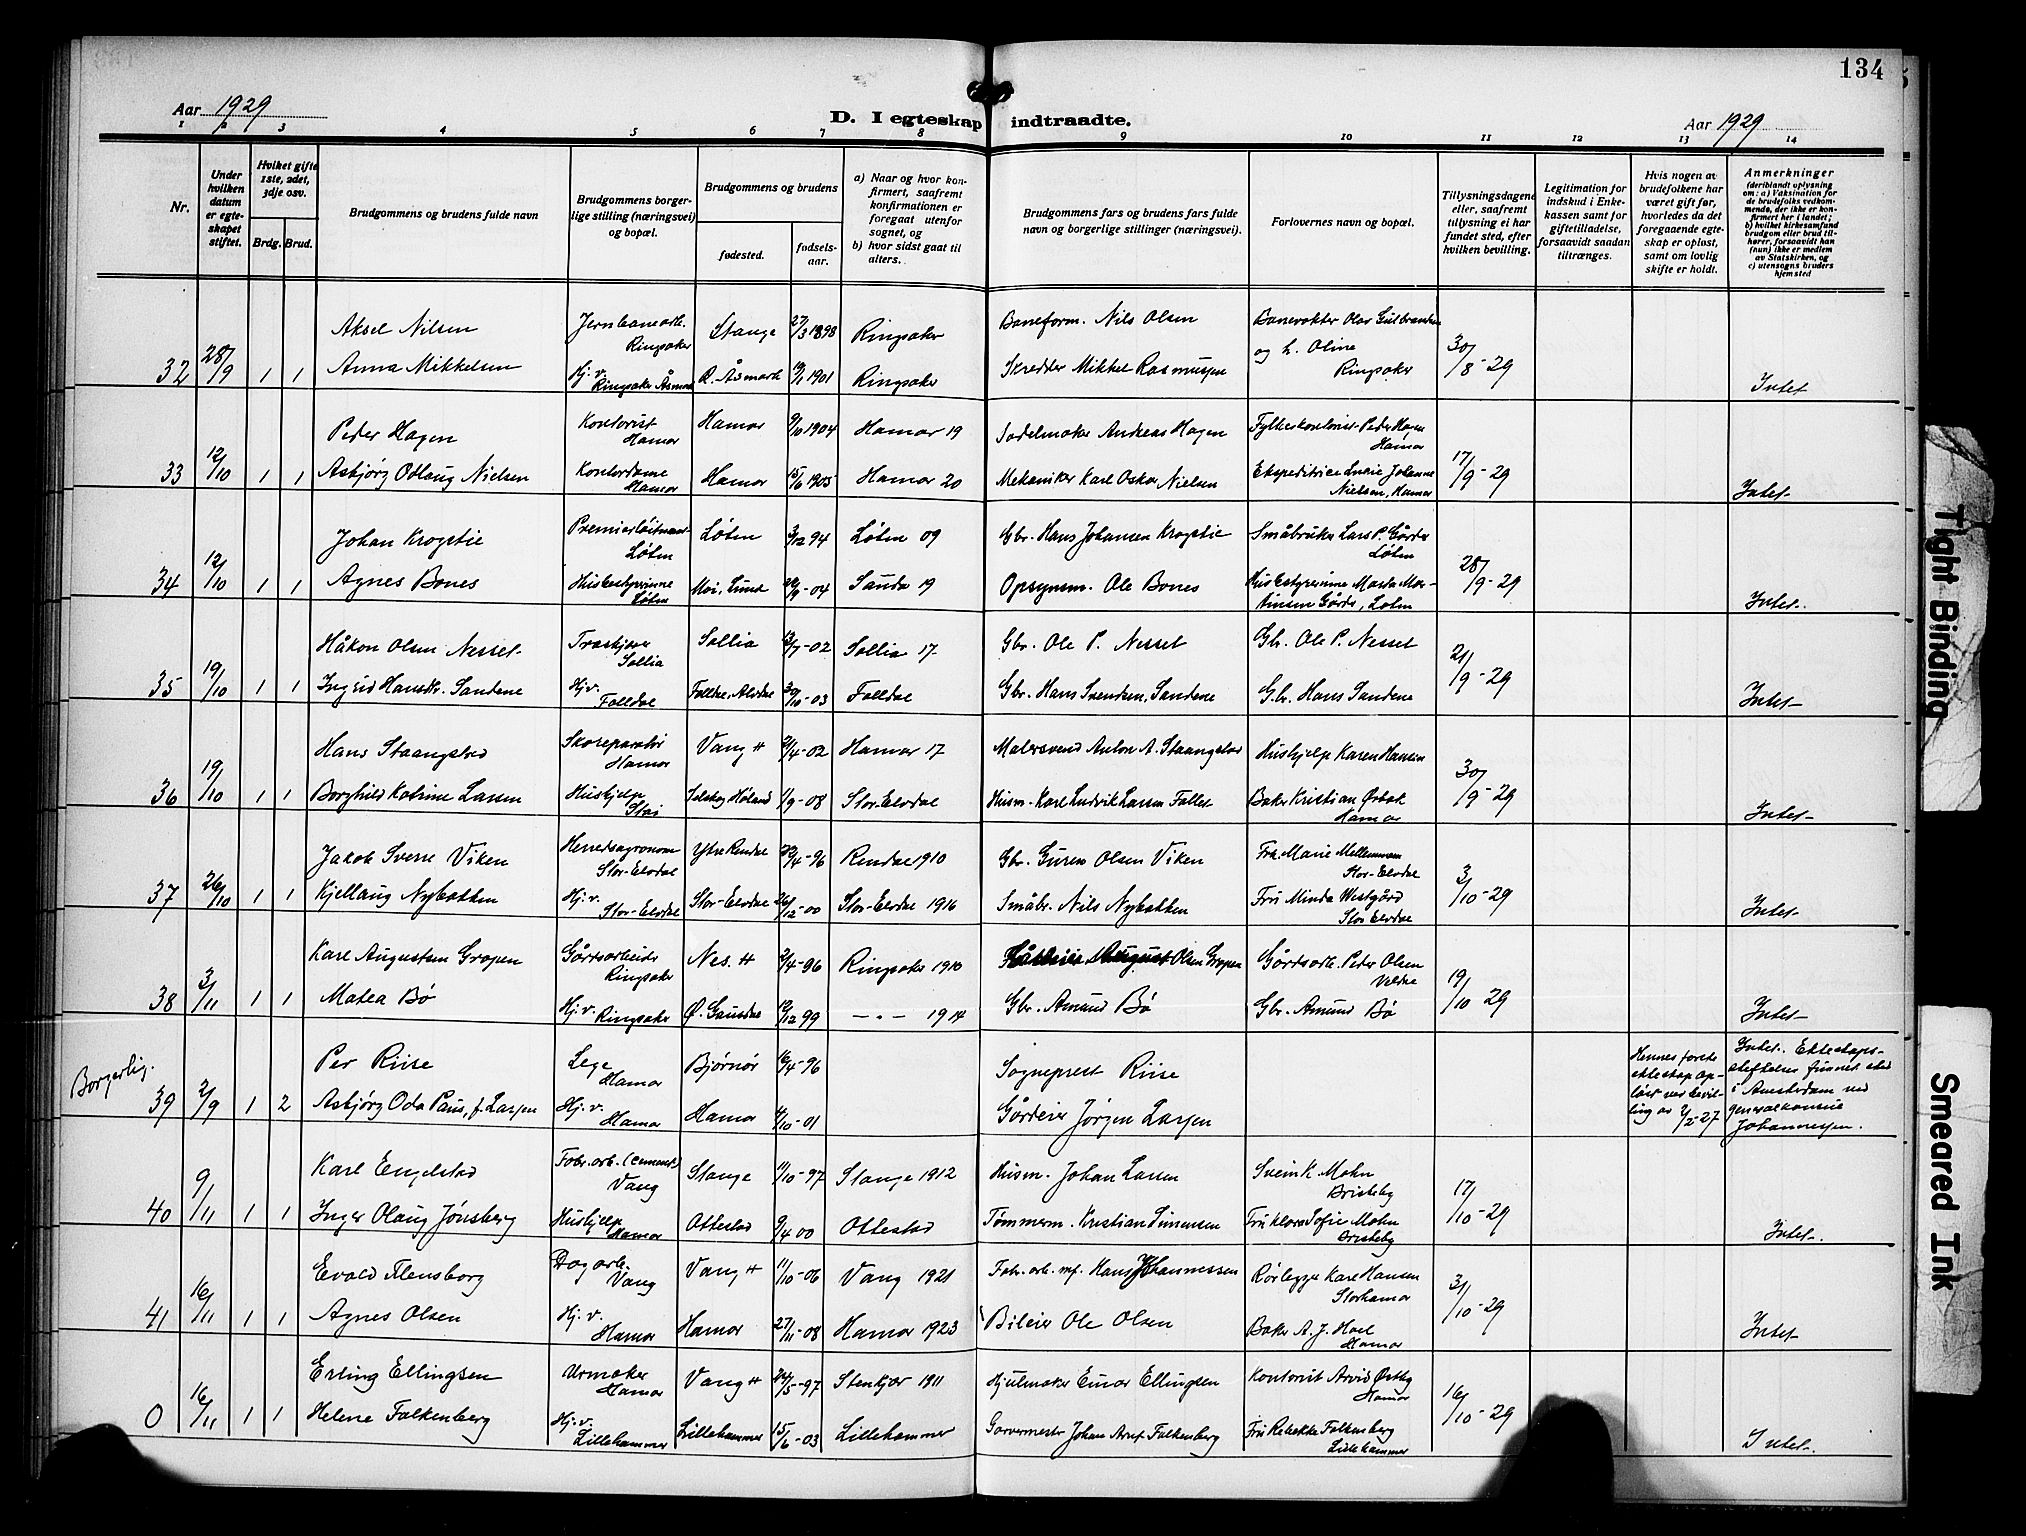 134
Aar 1929
D. I egteskap indtraadte.
Aar 1929
1 2 3 4 5 6 7 8 9 10 11 12 13 14
Nr.
Under hvilken datum er egteskapet stiftet.
Hvilket gifte 1ste, 2det, 3dje osv.
Brdg. Brud.
Brudgommens og brudens fulde navn
Brudgommens borgerlige stilling (næringsvei) og bopæl.
Brudgommens og brudens
fødested.
fødselsaar.
a) Naar og hvor konfirmert, saafremt konfirmationen er foregaat utenfor sognet, og
b) hvor sidst gaat til alters.
Brudgommens fars og brudens fars fulde navn og borgerlige stillinger (næringsvei).
Forlovernes navn og bopæl.
Tillysningsdagene eller, saafremt tillysning ei har fundet sted, efter hvilken bevilling.
Legitimation for indskud i Enkekassen samt for giftetilladelse, forsaavidt saadan tiltrænges.
Hvis nogen av brudefolkene har været gift før, hvorledes da det foregaaende egteskap er opløst, samt om lovlig skifte er holdt.
Anmerkninger
(deriblandt oplysning om: a) Vaksination for de brudefolks vedkommende, der ikke er konfirmert her i landet; b) hvilket kirkesamfund brudgom eller brud tilhører, forsaavidt han (hun) ikke er medlem av Statskirken, og c) utensogns bruders hjemsted
Aksel Nilsen Jernbanearb. Ringsaker Stange 27/3 1898 Ringsaker Baneform. Nils Olsen Banevokter Olav Gulbrandsen
32 28/9 1 1 Anna Mikkelsen Hj. v. Ringsaker R. Åsmark 1901 Ringsaker Skredder Mikkel Rasmussen og h. Oline Ringsaker 30/8-29 Intet
Peder Hagen Kontorist Hamar Hamar 9/10 1904 Hamar 19 Sadelmaker Andreas Hagen Hamar
33 12/10 1 1 Asbjørg Odlaug Nielsen Kontordame Hamar Hamar 15/6 1905 Hamar 20 Mekaniker Karl Oskar Nielsen Ekspeditrice Lucie Johanne Nielsen, Hamar 17/9-29 Intet
Johan Krogstie Premierløitnant Løten Løten 3/12 94 Løten 09 Gbr. Hans Johansen Krogstie Småbruker Lars P. Gårder Løten
34 12/10 1 1 Agnes Bones Husbestyrerinne Løten Moi, Lund -04 Sauda 19 Opsynsm. Ole Bones Husbestyrerinne Marta Martinsen Gårde, Løten 28/9-29 Intet
Håkon Olsen Nesset Sollia Sollia -02 Sollia 17 Gbr. Ole P. Nesset Gbr. Ole P. Nesset
35 19/10 1 1 Ingrid Hansdr. Sandene Hj. v. Folldal Folldal, Alvdal -03 Folldal Gbr. Hans Svendsen, Sandene Gbr. Hans Sandene 21/9-29 Intet
Hans Staangstad Skoreparatør Hamar Vang H -02 Hamar 17 Malersvend Anton A. Staangstad Hushjelp Karen Hansen
36 19/10 1 1 Borghild Katrine Larsen Hushjelp Stai Setskog Høland 1/9-08 Stor-Elvdal Husm. Karl Ludvik Larsen Fallet Baker Kristian Ørbak Hamar 30/9-29 Intet
Jakob Sverre Viken Herredsagronom Stor-Elvdal Ytre Rendal -96 Rendal 1910 Gbr. Guren Olsen Viken Frk. Marie Mellemmoen Stor-Elvdal
37 26/10 1 1 Kjellaug Nybakken Hj. v. Stor-Elvdal Stor-Elvdal 26/12-00 Stor-Elvdal 1916 Småbr. Nils Nybakken Fru Minda Westgård Stor Elvdal 3/10-29 Intet
Karl Augustsen Gropen Gårdsarbeider Ringsaker Nes. H 2/4-96 Ringsaker 1910 August Olsen Gropen Gårdsarb. Peder Olsen Veldre
38 3/11 1 1 Matea Bø Hj. v. Ringsaker Ø. Gausdal 12/12 99 —"— 1914 Gbr. Amund Bø Gbr. Amund Bø 19/10 29 Intet
Borgerlig. Per Riise Lege Hamar Bjørnør 16/4-96 Sogneprest Riise
39 2/9 1 2 Asbjørg Oda Paus, f. Larsen Hj. v. Hamar Hamar 4/10-01 Gårdeier Jørgen Larsen
Hennes første ekteskap opløst ved bevilling av 4/2-27
Intet. Ekteskapsstiftelsen funnet sted i Amsterdam ved generalkonsul Johannessen.
Karl Engelstad Fabr. arb. (cement) Vang Stange 11/10-97 Stange 1912 Husm. Johan Larsen Svein K. Mohn Briskeby
40 9/11 1 1 Inger Olaug Jønsberg Hushjelp Hamar Ottestad 9/4 00 Ottestad Tømmerm. Kristian Simensen Fru Klara Sofie Mohn Briskeby 17/10-29 Intet.
Evald Flensborg Dagarb. Vang Vang H 11/10-06 Vang 1921 Fabr. arb. mf. Hans Johannessen Rørlegger Karl Hansen Storhamar
41 16/11 1 1 Agnes Olsen Hj. v. Hamar Hamar 27/11-08 Hamar 1923 Bileier Ole Olsen Baker A. J. Hoel Hamar 31/10-29 Intet
Erling Ellingsen Urmaker Hamar Vang H 24/5-97 Stenkjær 1911 Hjulmaker Einar Ellingsen Kontorist Arvid Østby Hamar
0 16/11 1 1 Helene Falkenberg Hj. v. Lillehammer Lillehammer 15/6-03 Lillehammer Garvermester Johan Arnt Falkenberg Fru Rebekka Falkenberg Lillehammer 16/10-29 Intet
Tight Binding
Smeared Ink